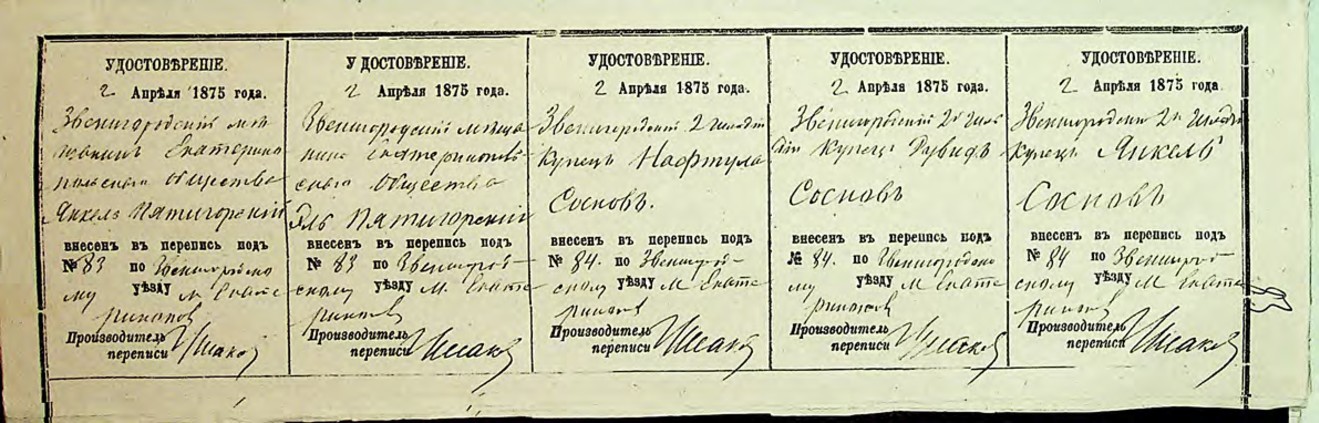 УДОСТОВѢРЕНІЕ.
2 Апрѣля 1875 года.
Звенигородскій мѣ
щанинъ Екатерино
польскаго Общества
Янкель Пятигорскій
внесенъ въ перепись подъ
№ 83 по Звенигородско
му уѣзду М. Екате
ринопов
Производитель
переписи
УДОСТОВѢРЕНІЕ.
2 Апрѣля 1875 года.
Звенигородскій мѣща
нинъ Екатеринопов
скаго Общества
Эль Пятигорскій
внесенъ въ перепись подъ
№ 83 по Звенигород-
скому уѣзду М. Екате
ринопов
Производитель
переписи
УДОСТОВѢРЕНІЕ.
2 Апрѣля 1875 года.
Звенигородскій 2 гильдіи
Купецъ Нафтула
Сосновъ.
внесенъ въ перепись подъ
№ 84. по Звенигород-
скому уѣзду М. Екате
ринопов
Производитель
переписи
УДОСТОВѢРЕНІЕ.
2 Апрѣля 1875 года.
Звенигородскій 2й гиль
діи Купецъ Дувидъ
Сосновъ
внесенъ въ перепись подъ
№ 84. по Звенигородско
му уѣзду М. Екате
ринопов
Производитель
переписи
УДОСТОВѢРЕНІЕ.
2 Апрѣля 1875 года
Звенигородскій 2й Гильдіи
Купецъ Янкель
Сосновъ
внесенъ въ перепись подъ
№ 84 по Звенигород-
скому уѣзду М. Екате
ринопов
Производитель
переписи